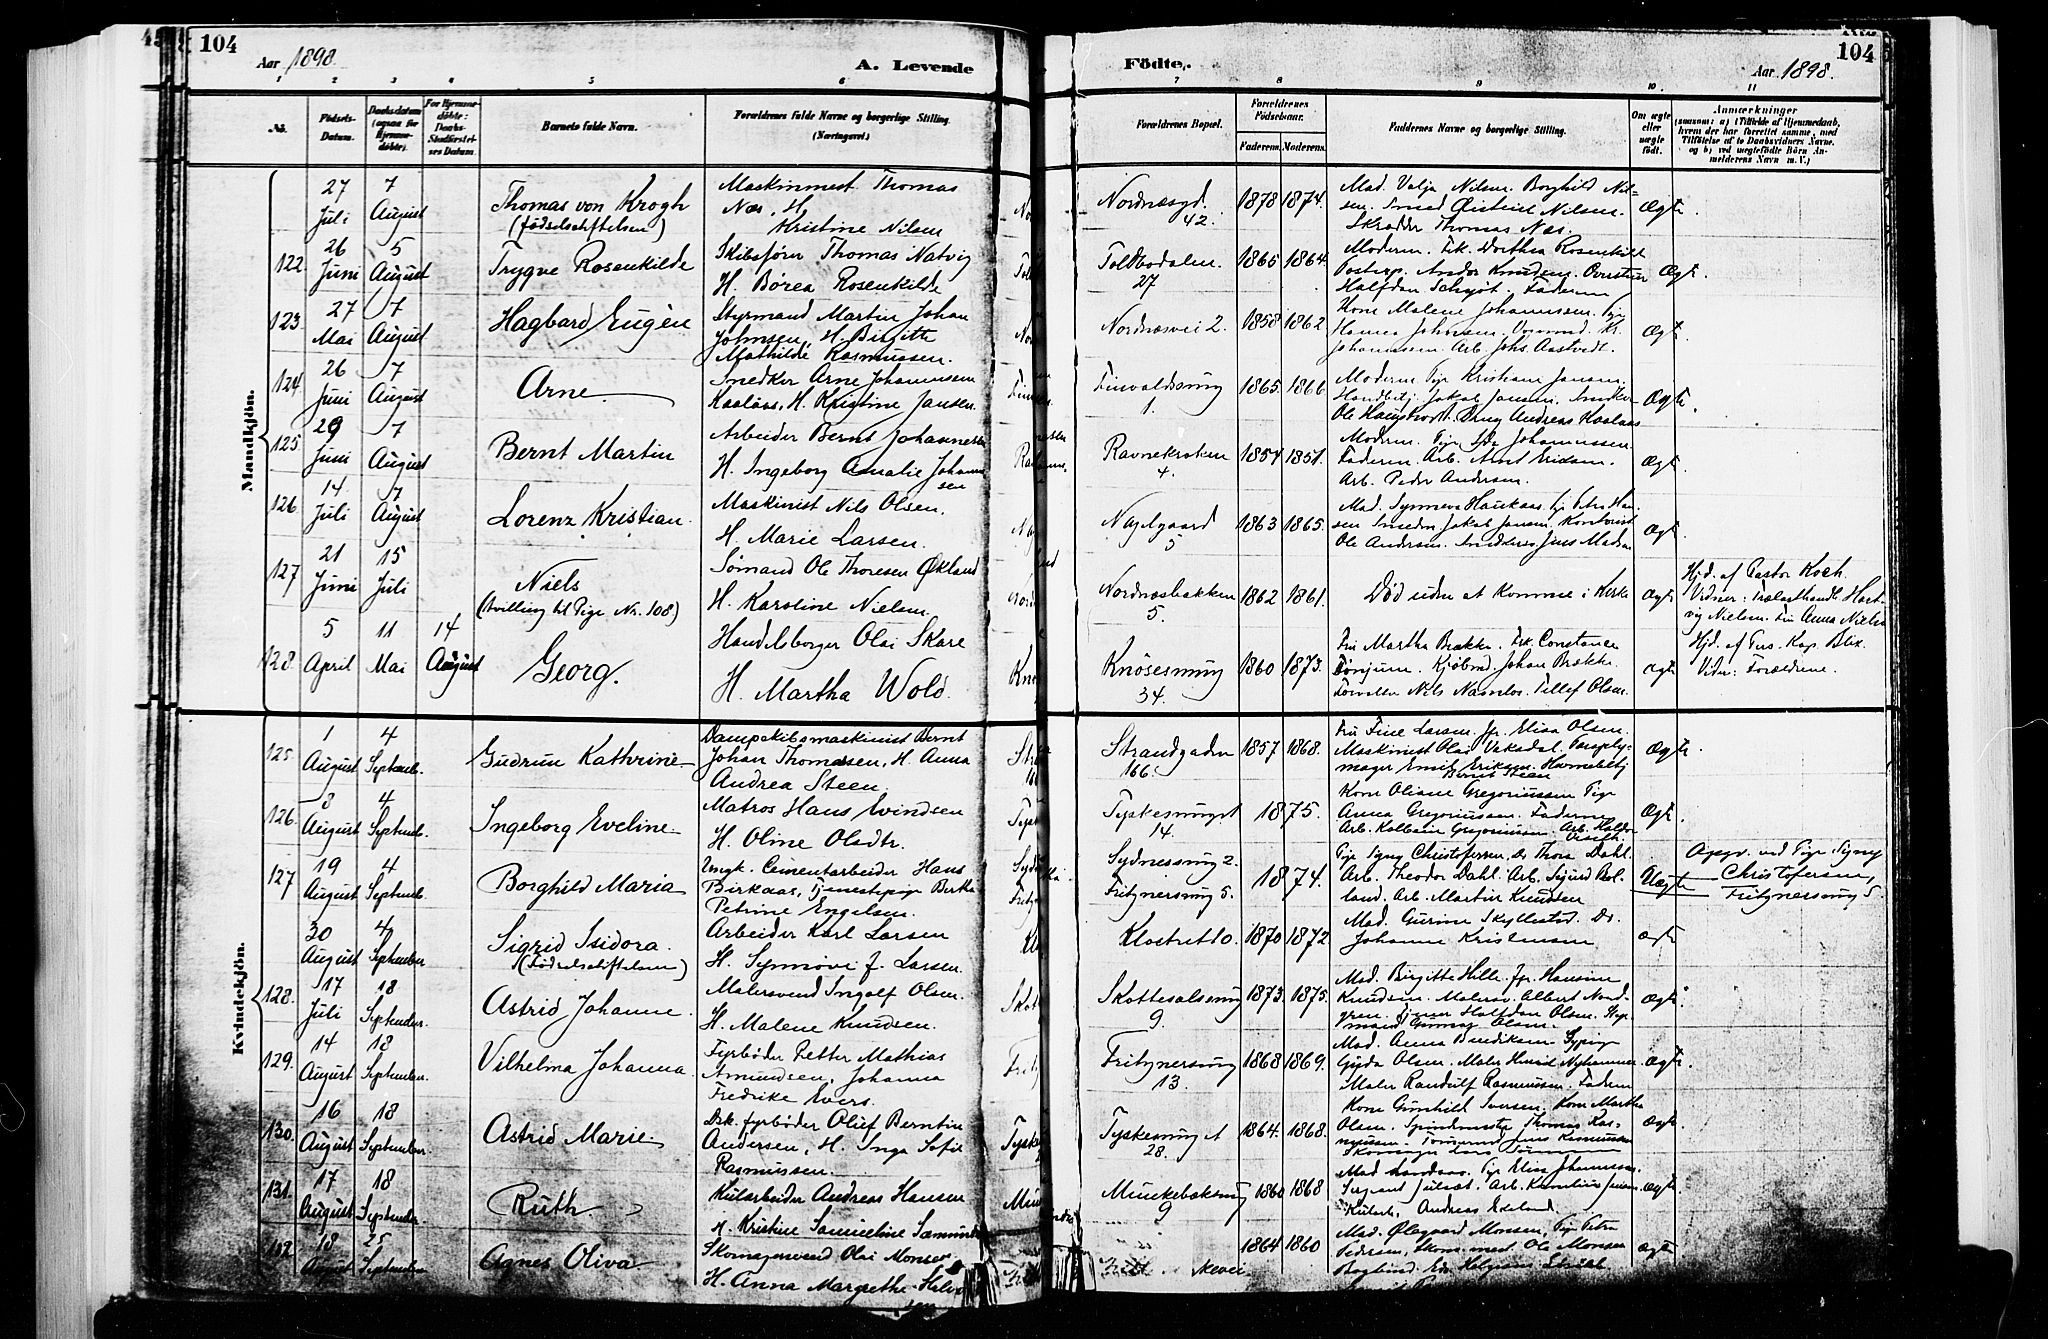 104
Aar 1898.
A. Levende
Födte.
Aar 1898.
104
1 2 3 4 5 6 7 8 9 10 11
No.
Födsels-
Datum.
Daabsdatum
(ogsaa for
Hjemme-
döbte).
For Hjemme-
döbte:
Daabs-
Stadfæstel-
ses Datum.
Barnets fulde Navn.
Forældrenes fulde Navne og borgerlige Stilling.
(Næringsvei)
Forældrenes Bopæl.
Forældrenes
Födselsaar.
Faderens. Moderens.
Faddernes Navne og borgerlige Stilling.
Om ægte
eller
uægte
født.
Anmærkninger
(saasom: a) i Tilfælde af Hjemmedaab,
hvem der har forrettet samme, med
Tilføielse af to Daabsvidners Navne.
og b) ved uægtefödte Börn An-
melderens Navn m. V.)
Mandkjön.
27 Juli
7 August
Thomas von Krogh
(Fødselsstiftelsen)
Maskinmest. Thomas
Næs, H.
Kristine Nilsen
Nordnæsgd.
42.
1878 1874.
Mad. Valja Nilsen. Borghild Nil-
sen. Smed Øistein Nilsen.
Skrædder Thomas Næs.
Ægte.
122.
26 Juni
5 August
Trygve Rosenkilde
Skibsfører Thomas Natvig
H. Børea Rosenkilde
Toldbodalm.
27
1865 1864.
Moderen. Frk. Dorthea Rosenkilde
Halfdan Schjøt. Faderen
Ægt.
123.
27 Mai
7 August
Hagbard Eugèn
Styrmand Martin Johan
Johnsen, H. Birgitte
Mathilde Rasmussen.
Nordnæsvei 2.
1858 1862
Kone Malene Johannessen. Pige
Johannessen. Arb. Johs. Aastvedt.
Ægt.
124
26 Juni
7 August
Arne
Snedker Arne Johannesen
Kaalaas, H. Kristine Jansen
1.
1865. 1866
Moderen. Pige Kristiane Jansen.
Jakob Jansen. Snedker
Andreas Kaalaas
Ægte.
125.
29 Juni
7 August
Bernt Martin
Arbeider Bernt Johannessen
H. Ingeborg Amalie Johann
sen
Ravnekroken
4.
1854 1851.
Moderen. Pige Ida Johannessen.
Faderen. Arb. Arnt Eriksen.
Arb. Peder Andersen.
Ægt.
126.
14 Juli
7 August
Lorenz Kristian.
Maskinist Nils Olsen.
H. Marie Larsen.
Nagelgaard
5
1863 1865.
Mad. Synneva Haukaas. Pige Petra Han-
sen. Jakob Jansen. Kontorist
Ole Andersen. Jens Madsen
Ægt.
127.
21 Juni
15 Juli
Niels
(tvilling til Pige No. 108)
Sømand Ole Thoresen Økland
H. Karoline Nielsen.
Nordnæsbakken
5.
1862 1861.
Død uden at komme i Kirke
Ægt.
Hjd. af Pastor Koch.
Vidner: Trælasthandl. Hart-
vig Nielsen. Fru Anna Nielsen
128.
5 April
11 Mai
14 August
Georg.
Handelsborger Olai Skare
H. Martha Wold.
Knøsesmug
34.
1860 1873.
Fru Martha Brække. Frk. Constance
Tønjum. Kjøbmd. Johan Brække
Nils Næsnelos. Tellef Olsen.
ægte
Hjd. af Pers. Kap. Blix.
Vidn: Forældrene.
Kvindekjön.
125.
1 August
4 Septemb.
Gudrun Kathrine
Dampskibsmaskinist Bernt
Johan Thomassen, H. Anna
Andrea Steen.
Strandgaden
166.
1857 1868.
Fru Fine Larsen. Jfr. Elisa Olsen.
Maskinist Olai Vaksdal. Paraply-
mager Emil Eriksen. Havnebetj.
Bernt Steen
Ægte.
126.
8 August
4 Septemb.
Ingeborg Eveline
Matros Hans Evindsen
H. Oline Olsdtr.
Tyskesmuget
14.
1875.
Kone Oliane Gregoriussen. Pige
Anna Gregoriussen. Faderen
Arb. Kolbein Gregoriussen. Arb. Haldor
Ægt.
127
19 August
4 Septemb.
Borghild Maria
Ungk. Cementarbeider Hans
Birkaas, Tjenestepige Berthe
Petrine Engelsen.
Sydnessmug 2.
Fritznersmug 5.
1874.
Pige Signy Christofersen, Do Thora Dahl.
Arb. Theodor Dahl. Arb. Sigurd Bol-
land. Arb. Martin Knudsen
Uægte
Opgv. ved Pige Signy
Christofersen,
Fritznersmug 5.
30 August
4 September
Sigrid Isidora.
(Fødselsstiftelsen)
Arbeider Karl Larsen
H. Synnøve f. Larsen.
Klostret 10.
1870 1872
Mad. Gurine Skyllestad. Do.
Johanne Kristensen
ægte
128.
17 Juli
18 September.
Astrid Johanne.
Malersvend Ingolf Olsen.
H. Malene Knudsen.
Skottesalsmug
9.
1873 1875.
Mad. Birgitte Hille. Jfr. Hansine
Knudsen. Malersv. Albert Nord-
gren. Halfdan Olsen.
Olsen.
Ægte.
129.
14 August
18 September.
Vilhelma Johanna.
Fyrbøder Petter Mathias
Amundsen, Johanna
Fredrike Evers.
Fritznersmug
13.
1868 1869.
Mad. Anna Bendiksen. Sypige
Gyda Olsen. Maler Henrik Nyhammer
Maler Randulf Rasmussen. Faderen
ægte.
130.
16 August
18 September.
Astrid Marie
Dsk. fyrbøder Oluf Berntin
Andersen, H. Inga Sofie
Rasmussen.
Tyskesmuget
28.
1864. 1868.
Kone Gunhild Iversen. Kone Martha
Olsen. Spindemester Thomas Ras-
mussen. Jens Rasmussen
Ægte.
131.
17 August
18 September.
Ruth
Kularbeider Andreas Hansen
H. Kristine Samueline Samuelsen
Munkebæksmug
9
1860 1868
Mad. Landaas. Pige Elise Johannessen.
Sergeant Julsæt. Arb. Kornelius Jensen.
Kularb. Andreas Eideland.
ægte.
132.
18 August
25 September
Agnes Oliva
Skomagersvend Olai Monsen
H. Anna Margrethe Halvor
sen
1864 1860
Mad. Ølegaard Monsen, Pige Petra
Pedersen, Skom. mest. Ole Monsen
ægte